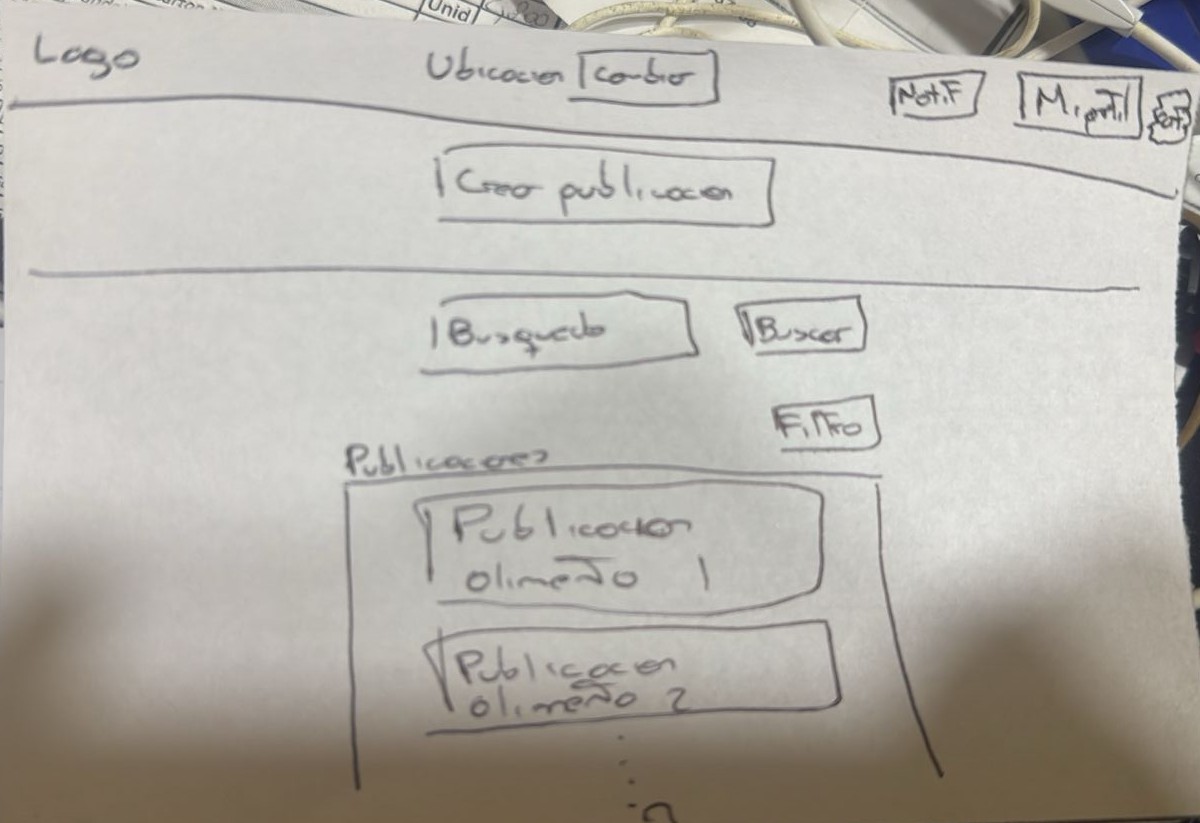 Unid
Logo
Ubicacion cambiar
Notif
Mi perfil
Crear publicacion
Busqueda
Buscar
Filtro
Publicaciones
Publicacion
alimento 1
Publicacion
alimento 2